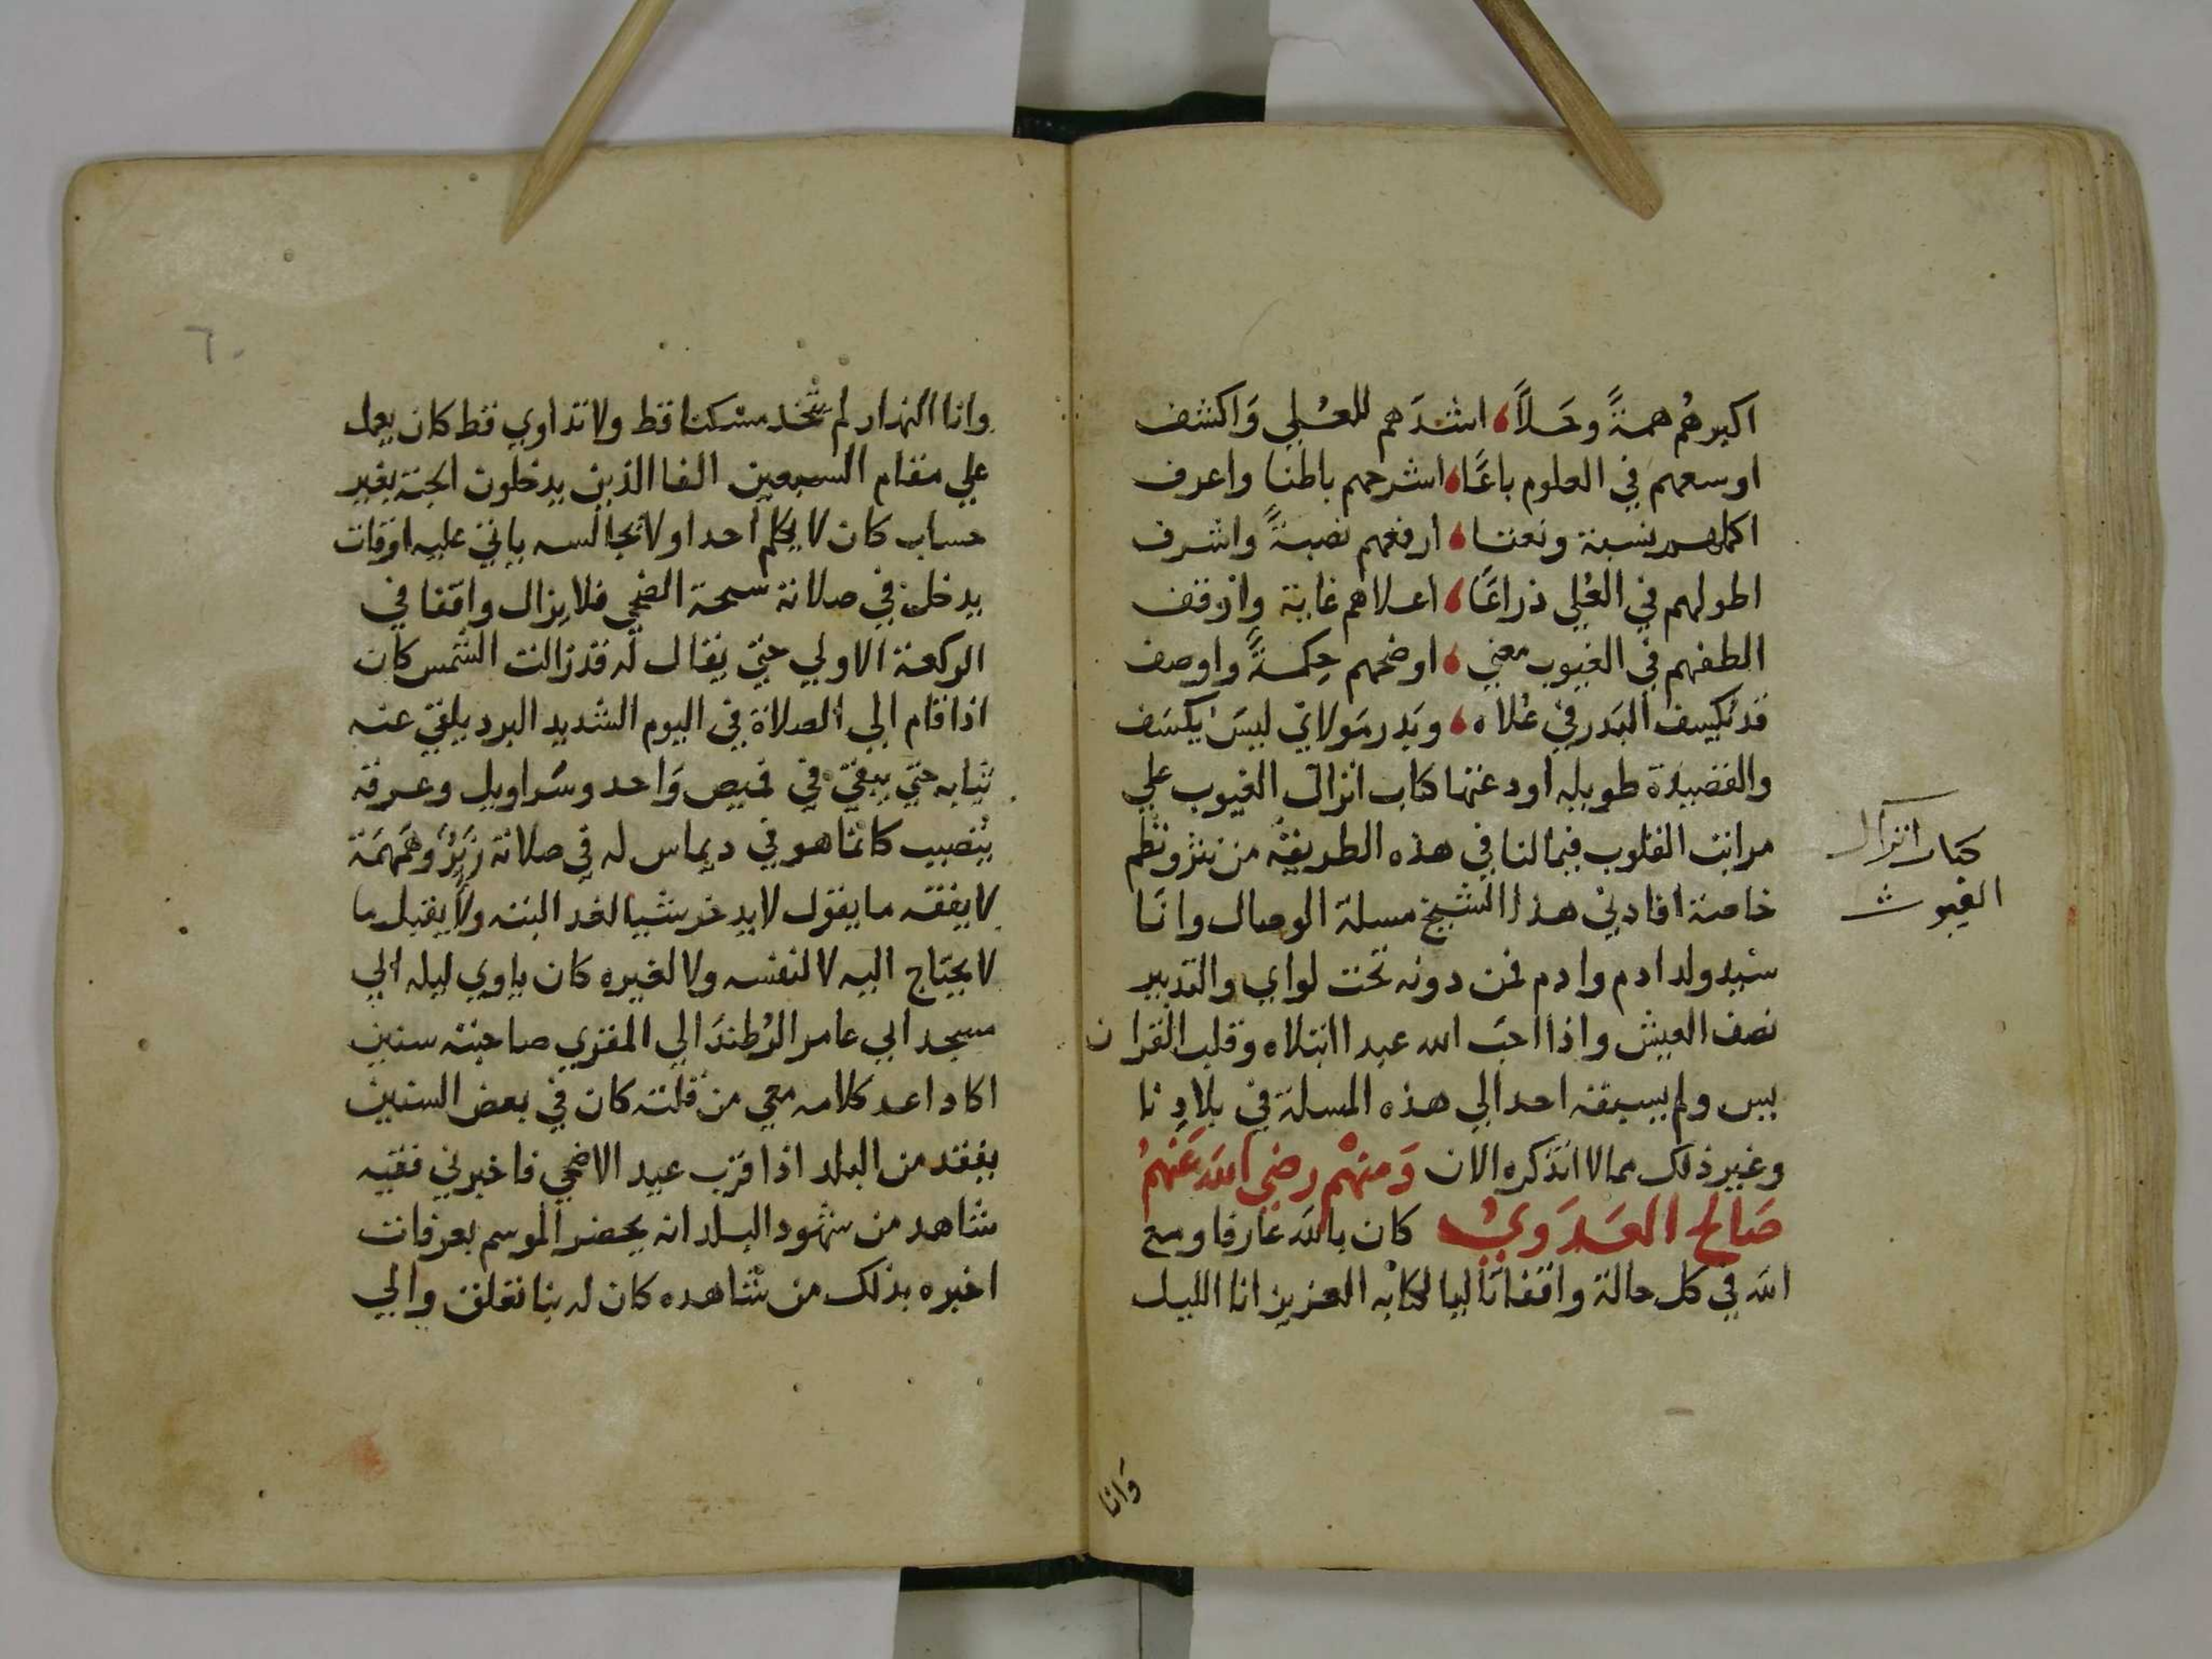 اكبرهُم همةً وحَلاً اشدَهم للعُلي وَاكشف
اوسعهم في العلوم باعًا اشرحهم باطنا واعرف
اكملهم نسبة ونعتا ارفعهم نصبةً واشرف
اطولهم في العُلي ذراعًا اعلاهم غاية واوقف
الطفهم في الغيوب معني اوضحهم حِكمةً واوصف
قد يُكسِف البَدر في عُلاه وبَدر مَولاي ليسَ يكسَف
والقصيدة طويله اودعتها كتاب انزال الغيوب علي
مراتب القلوب فيما لنا في هذه الطريقة من نثر ونظم
خاصة افادني هذا الشيخ مسلة الوصال وانا
سيد ولد ادم وادم فمن دونه تحت لواي والتدبير
نصف العيش واذا احبّ الله عبدا ابتلاه وقلب القران
يس ولم يسبقه احد الي هذه المسلة في بلادنا
وغير ذلك مما لا اتذكره الان وَمنهُم رضي الله عَنهُم
صَالح العَدَوي كان بالله عارفا ومع
الله في كل حالة واقفا تاليا لكتابه العزيز انا الليل
كتاب انزال
الغيوب
وَانا
٦٠
وانا النهار لم يتخذ مسكنا قط ولا تداوي قط كان يعمل
علي مقام السبعين الفا الذين يدخلون الجنة بغير
حساب كان لا يكلم احدا ولا يجالسه ياتي عليه اوقات
يدخل في صلاته سبحة الضحي فلا يزال واقفا في
الركعة الاولي حتي يقال له قد زالت الشمس كان
اذا قام الي الصلاة في اليوم الشديد البرد يلقي عنه
ثيابه حتي يبقي في قميص وَاحد وسَراويل وعرقه
يَنصبب كانما هو في ديماس له في صلاته زَئِرٌ وهَمهَمَة
لا يفقه ما يقول لا يدخر شيا لغد البته ولا يقبل ما
لا يحتاج اليه لا لنفسه ولا لغيره كان ياوي ليله الي
مسجد ابي عامر الرُطندَالي المقري صاحبته سنين
اكاد اعد كلامه معي من قلته كان في بعض السنين
يفقد من البلد اذا قرب عيد الاضحي فاخبرني فقيه
شاهد من شهود البلد انه يحضر الموسم بعرفات
اخبره بذلك من شاهده كان له بنا تعلق والي